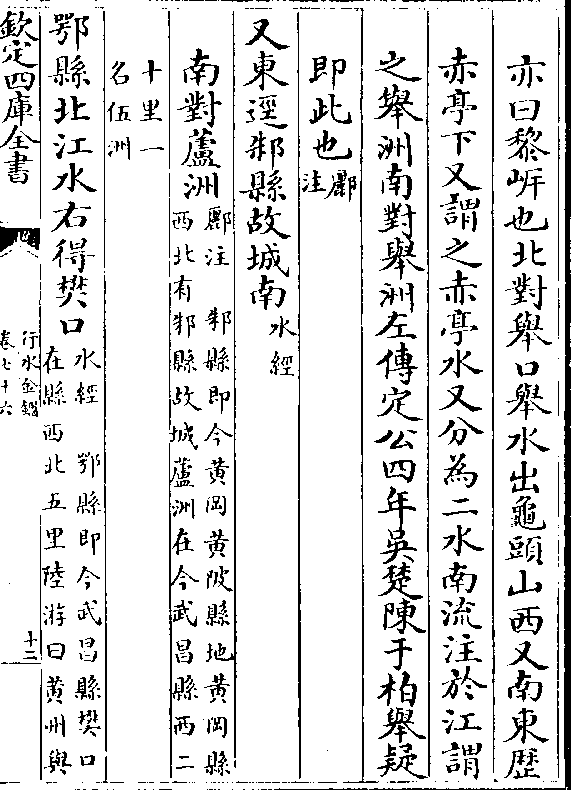 亦曰黎岍也北對舉口舉水出龜頭山西又南東歴
赤亭下又謂之赤亭水又分為二水南流注於江謂
之舉洲南對舉洲左傳定公四年吳楚陳于柏舉疑
即此也酈注
又東逕邾縣故城南水經
南對蘆洲酈注　邾縣即今黄岡黄陂縣地黄岡縣
西北有邾縣故城蘆洲在今武昌縣西二
十里一
名伍洲
鄂縣北江水右得樊口水經　鄂縣即今武昌縣樊口
在縣西北五里陸游曰黄州與
欽定四庫全書
行水金鑑
卷七十六
十二